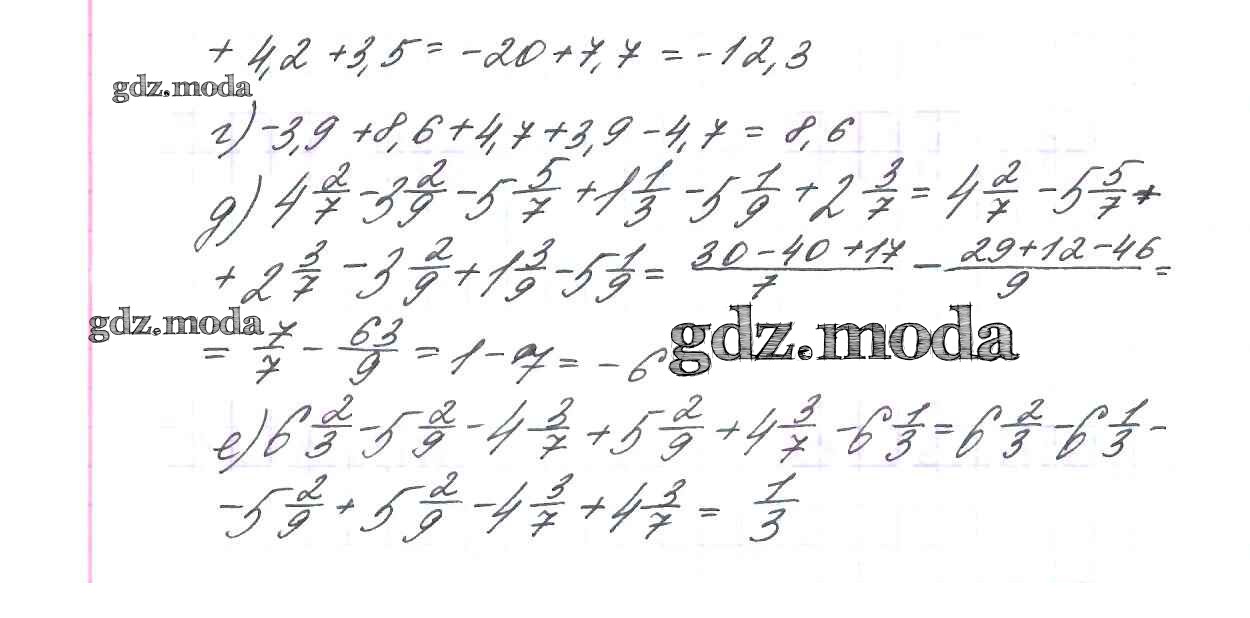 + 4,2 + 3,5 = -20 + 7,7 = -12,3
gdz.moda
г) -3,9 + 8,6 + 4,7 + 3,9 - 4,7 = 8,6
д) 4 2/7 - 3 2/9 - 5 5/7 + 1 1/3 - 5 1/9 + 2 3/7 = 4 2/7 - 5 5/7 +
+ 2 3/7 - 3 2/9 + 1 3/9 - 5 1/9 = (30 - 40 + 17)/7 - (29 + 12 - 46)/9 =
gdz.moda
gdz.moda
= 7/7 - 63/9 = 1 - 7 = -6
е) 6 2/3 - 5 2/9 - 4 3/7 + 5 2/9 + 4 3/7 - 6 1/3 = 6 2/3 - 6 1/3 -
- 5 2/9 + 5 2/9 - 4 3/7 + 4 3/7 = 1/3